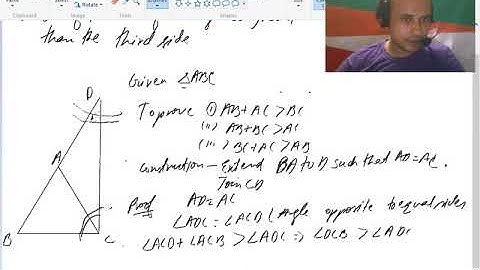 Clipboard
Image
Tools
than the third side
Given △ABC
To prove (i) AB+AC>BC
(ii) AB+BC>AC
(iii) BC+AC>AB
Construction — Extend BA to D such that AD=AC.
Join CD
Proof AD=AC
∠ADC=∠ACD (Angle opposite to equal sides
∠ACD+∠ACB>∠ADC ⇒ ∠DCB>∠ADC
D
A
B
C